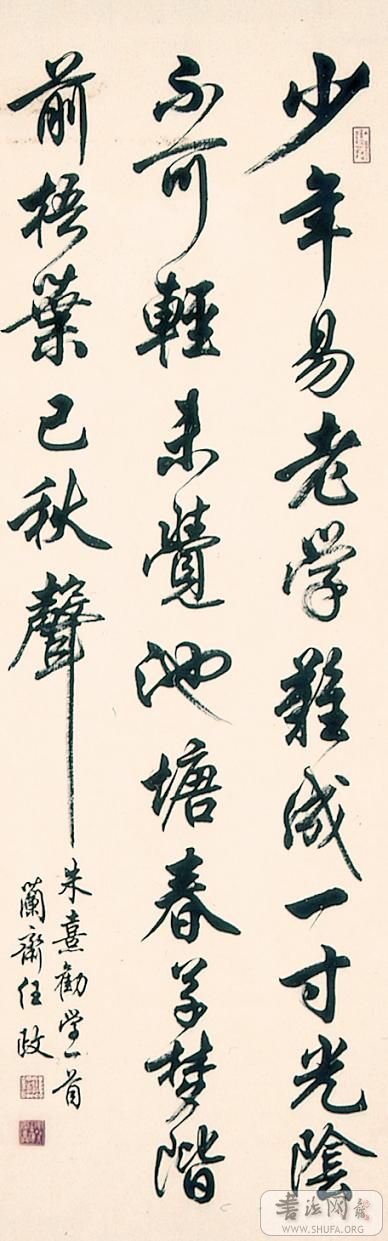 少年易老学難成一寸光陰
不可輕未覺池塘春草梦階
前梧葉已秋聲
朱熹勸学一首
蘭齋任政
书法网
WWW.SHUFA.ORG